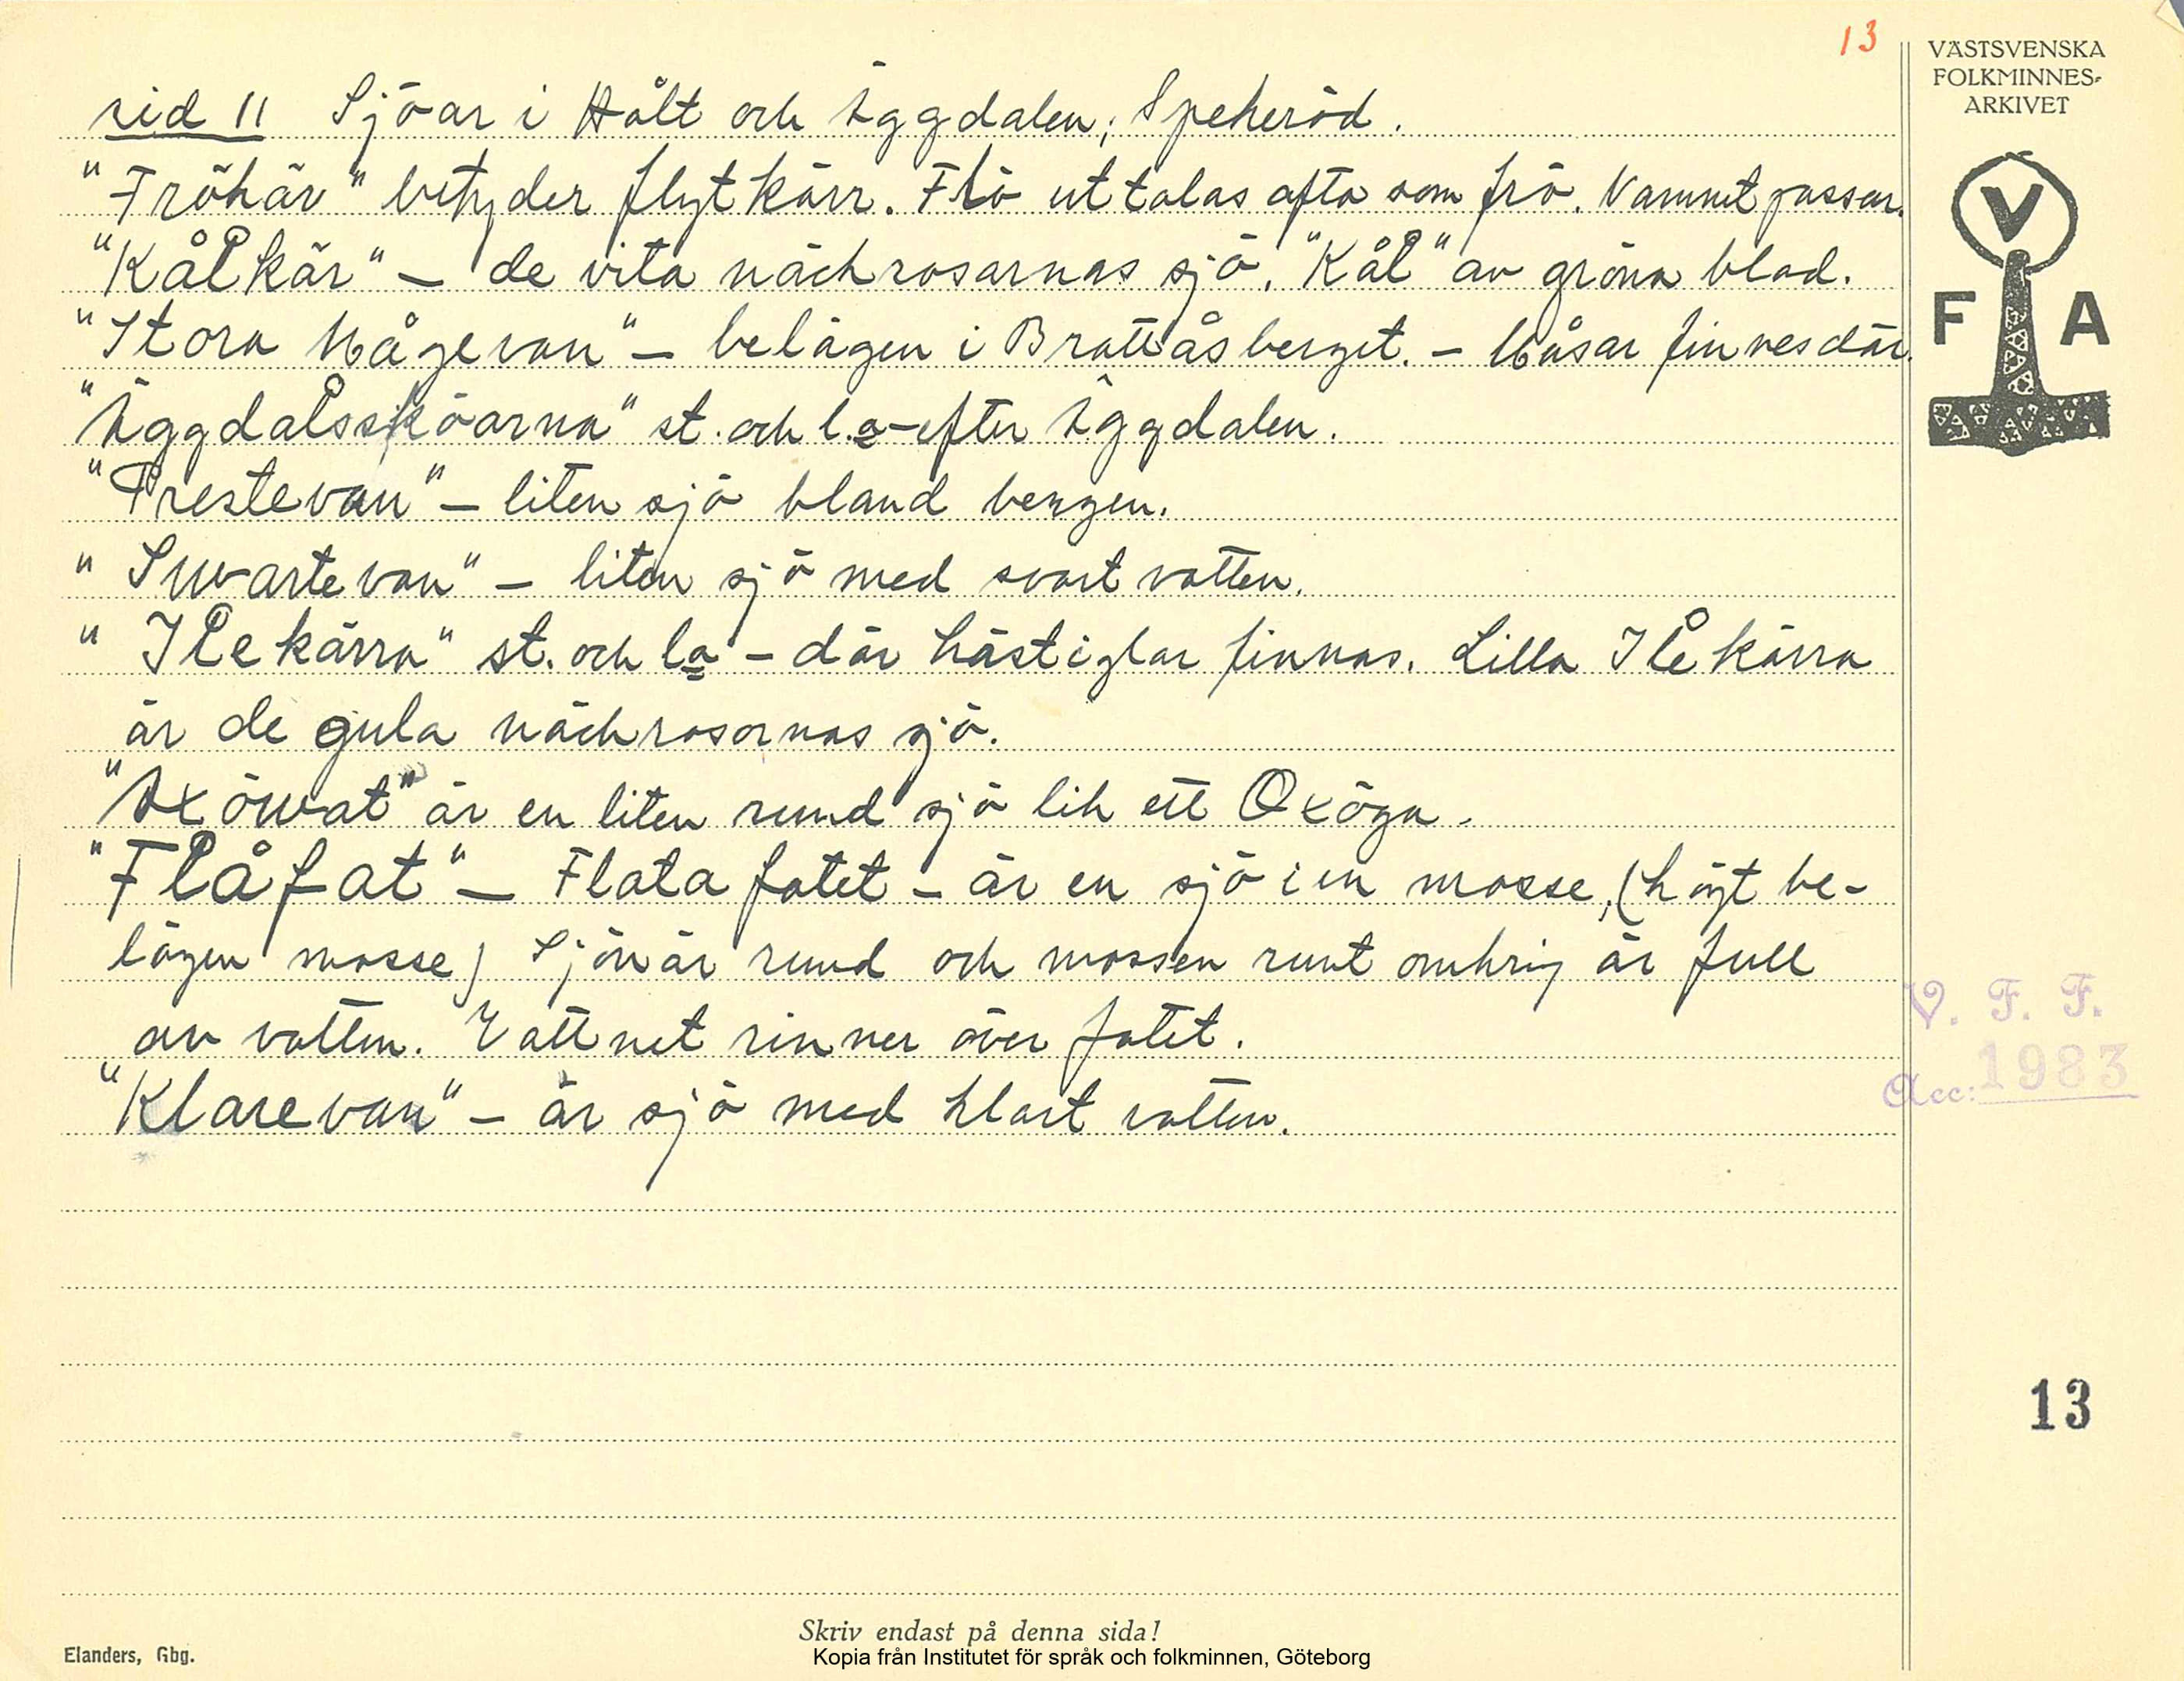 13
VÄSTSVENSKA
FOLKMINNES-
ARKIVET
V
F A
sid 11 Sjöar i Hålt och Äggdalen, Spekeröd.
"Frökär" betyder flytkärr. Flö uttalas ofta som frö. Namnet passar.
"Kålkär" – de vita näckrosarnas sjö. "Kål" av gröna blad.
"Stora Mågevan" – belägen i Brattåsberget. – Måsar finnes där.
"Äggdalssjöarna" st. och l.a – efter Äggdalen.
"Prestevan" – liten sjö bland bergen.
"Swartevan" – liten sjö med svart vatten.
"Ilekärra" st. och la – där hästiglar finnas. Lilla Ilekärra
är de gula näckrosornas sjö.
är en liten rund sjö lik ett Oxöga.
"Flåfat" – Flata fatet – är en sjö i en mosse, (högt be-
lägen mosse) Sjön är rund och mossen runt omkring är full
av vatten. Vattnet rinner över fatet.
"Klarevan" – är sjö med klart vatten.
V. F. F.
Acc: 1983
13
Skriv endast på denna sida!
Elanders, Gbg.
Kopia från Institutet för språk och folkminnen, Göteborg